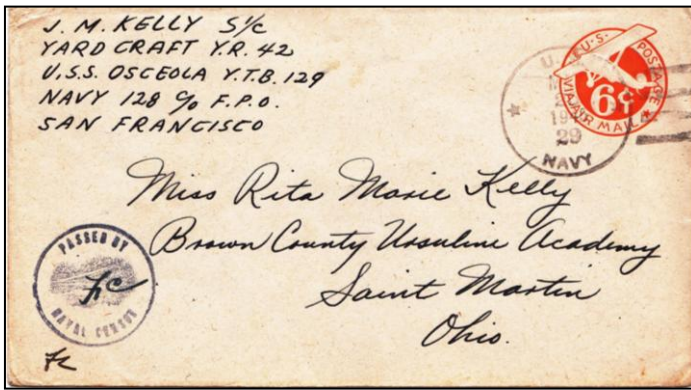 J. M. KELLY S1/c
YARD CRAFT Y.R. 42
U.S.S. OSCEOLA Y.T.B. 129
NAVY 128 c/o F.P.O.
SAN FRANCISCO
U.S. POSTAGE
6¢
VIA AIR MAIL
U.S.
29
NAVY
Miss Rita Marie Kelly
Brown County Ursuline Academy
Saint Martin
Ohio.
PASSED BY
NAVAL CENSOR